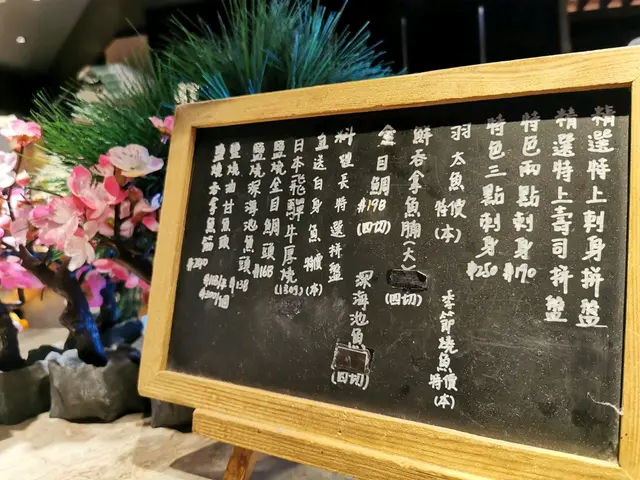 精選特上刺身拼盤
精選特上壽司拼盤
特色兩點刺身 $190
特色三點刺身 $250
羽太魚 特價(本)
季節燒魚 特價(本)
鮮吞拿魚腩(大) (四切)
金目鯛 $198 (四切)
深海池魚 (四切)
料理長特選拼盤
直送白身魚 特價(本)
日本飛驒牛厚燒 (130g)
鹽燒金目鯛頭 $168
鹽燒深海池魚頭 $138
鹽燒油甘魚頭
鹽燒吞拿魚